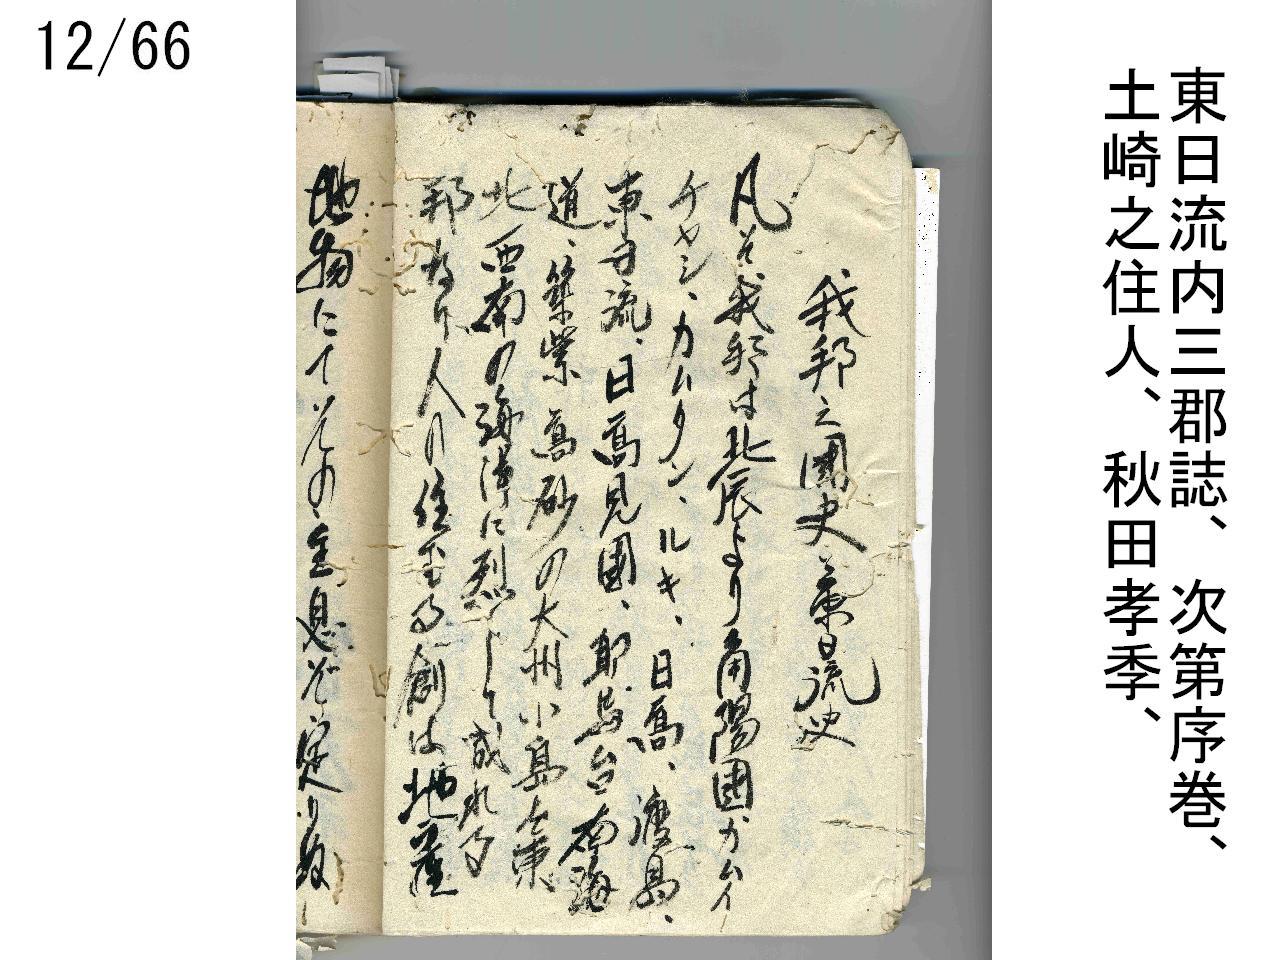 12/66
東日流内三郡誌、次第序巻、
土崎之住人、秋田孝季、
我邦之國史と東日流史
凡そ我邦は北辰より角陽國カムイ
チャシ、カムタン、ルキ、日高、渡島、
東日流、日高見國、耶馬台南海
道、築紫高砂の大州小島を東
北西南の海澤に列して成れる
邦なり、人の住る創は地産
地物にてその